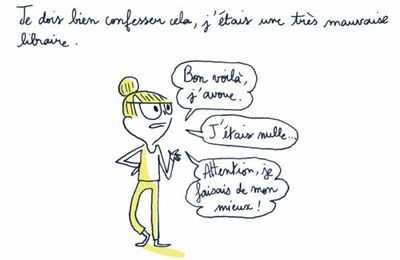 Je dois bien confesser cela, j'étais une très mauvaise
libraire.
Bon voilà,
j'avoue.
J'étais nulle...
Attention, je
faisais de mon
mieux !